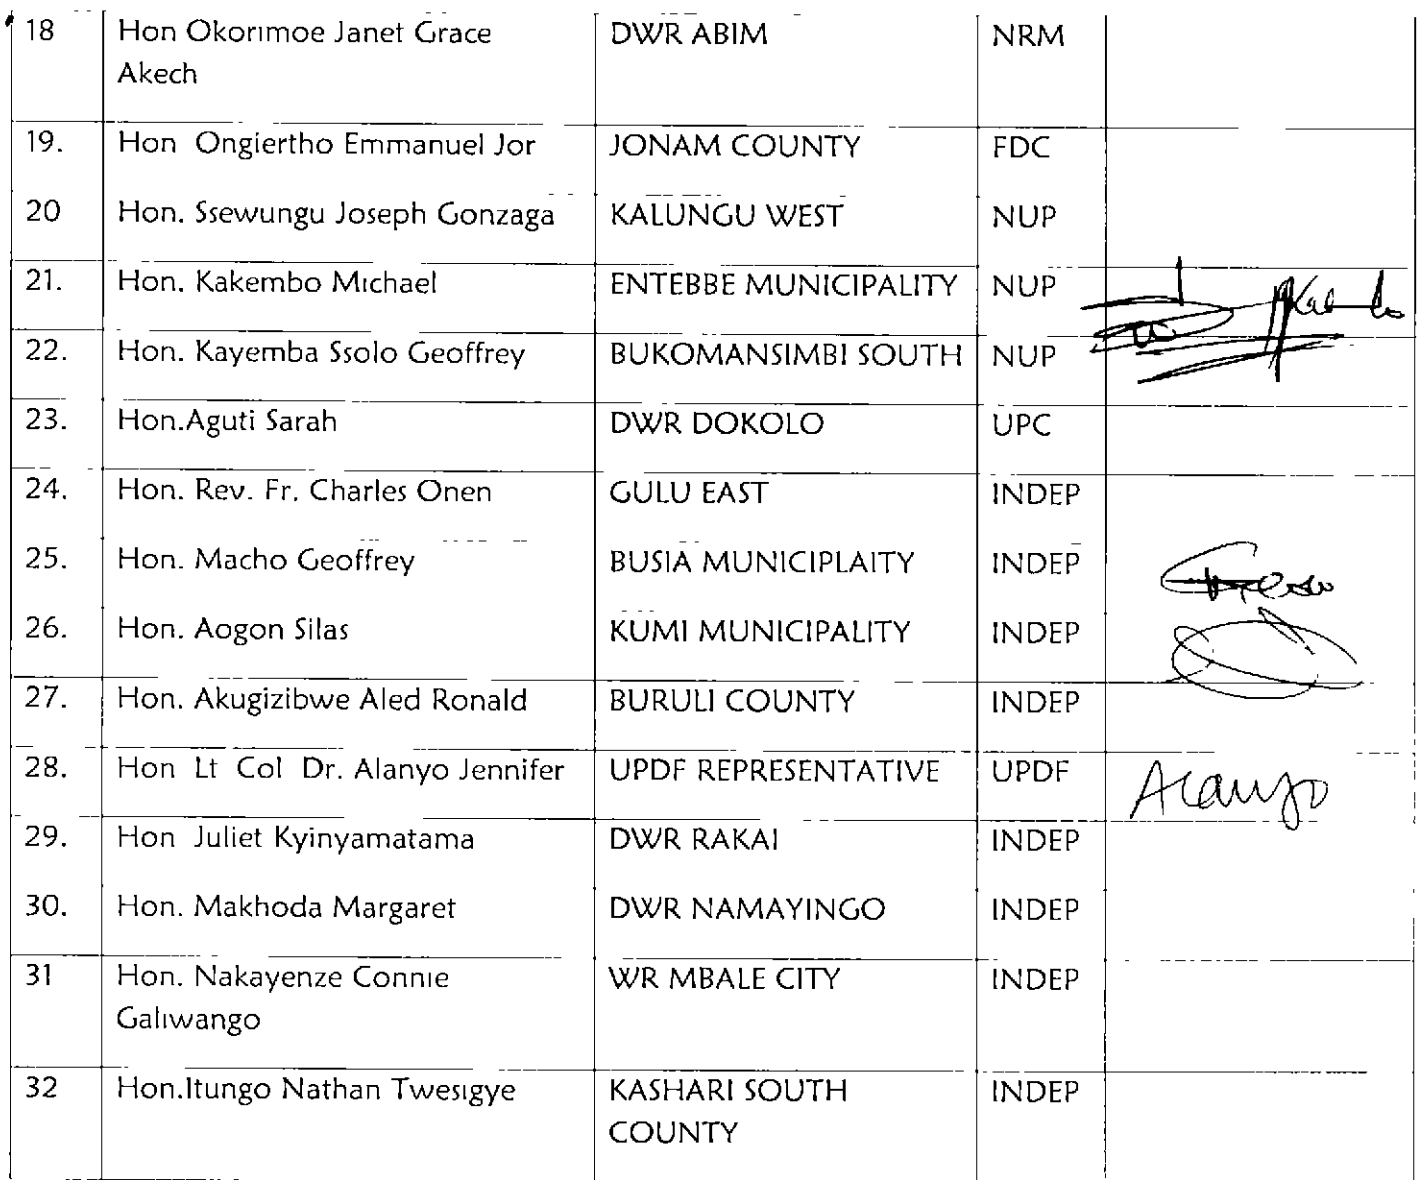 18 Hon Okorimoe Janet Grace DWR ABIM NRM
Akech
19. Hon Ongiertho Emmanuel Jor JONAM COUNTY FDC
20 Hon. Ssewungu Joseph Gonzaga KALUNGU WEST NUP
21. Hon. Kakembo Michael ENTEBBE MUNICIPALITY NUP
22. Hon. Kayemba Ssolo Geoffrey BUKOMANSIMBI SOUTH NUP
23. Hon.Aguti Sarah DWR DOKOLO UPC
24. Hon. Rev. Fr. Charles Onen GULU EAST INDEP
25. Hon. Macho Geoffrey BUSIA MUNICIPLAITY INDEP
26. Hon. Aogon Silas KUMI MUNICIPALITY INDEP
27. Hon. Akugizibwe Aled Ronald BURULI COUNTY INDEP
28. Hon Lt Col Dr. Alanyo Jennifer UPDF REPRESENTATIVE UPDF Alanyo
29. Hon Juliet Kyinyamatama DWR RAKAI INDEP
30. Hon. Makhoda Margaret DWR NAMAYINGO INDEP
31 Hon. Nakayenze Connie WR MBALE CITY INDEP
Galiwango
32 Hon.Itungo Nathan Twesigye KASHARI SOUTH INDEP
COUNTY